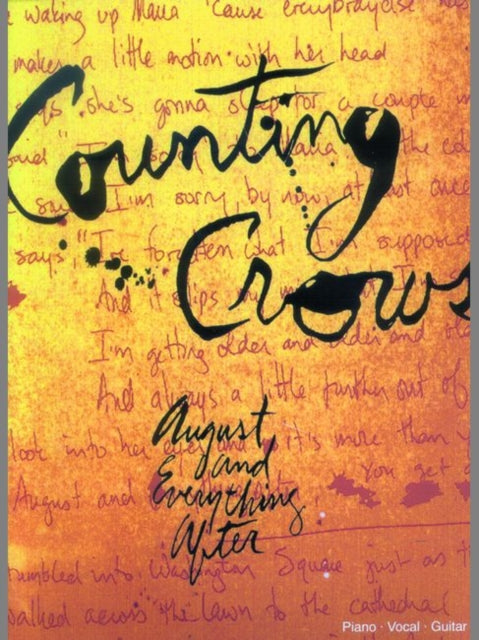 waking up Maria 'cause everybody else has
makes a little motion with her head
Counting
says she's gonna sleep for a couple m
said
I'm sorry, by now, at
says, "I've forgotten what I'm supposed
Crows
And it slips my
I'm getting older and older and
And always a little further out of
August
and
Everything
After
look into her eyes and it's more than
you get a
August and
tumbled into Washington Square just as t
walked across the lawn to the cathedral
Piano · Vocal · Guitar